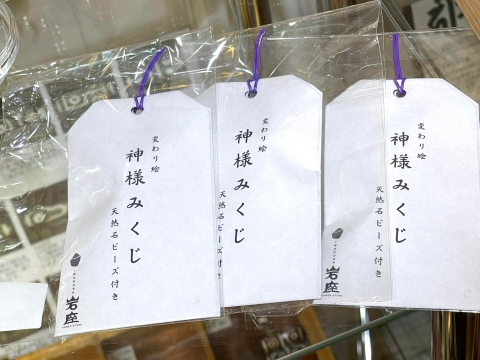 変わり絵
神様みくじ
天然石ビーズ付き
岩座
変わり絵
神様みくじ
天然石ビーズ付き
岩座
変わり絵
神様みくじ
天然石ビーズ付き
岩座